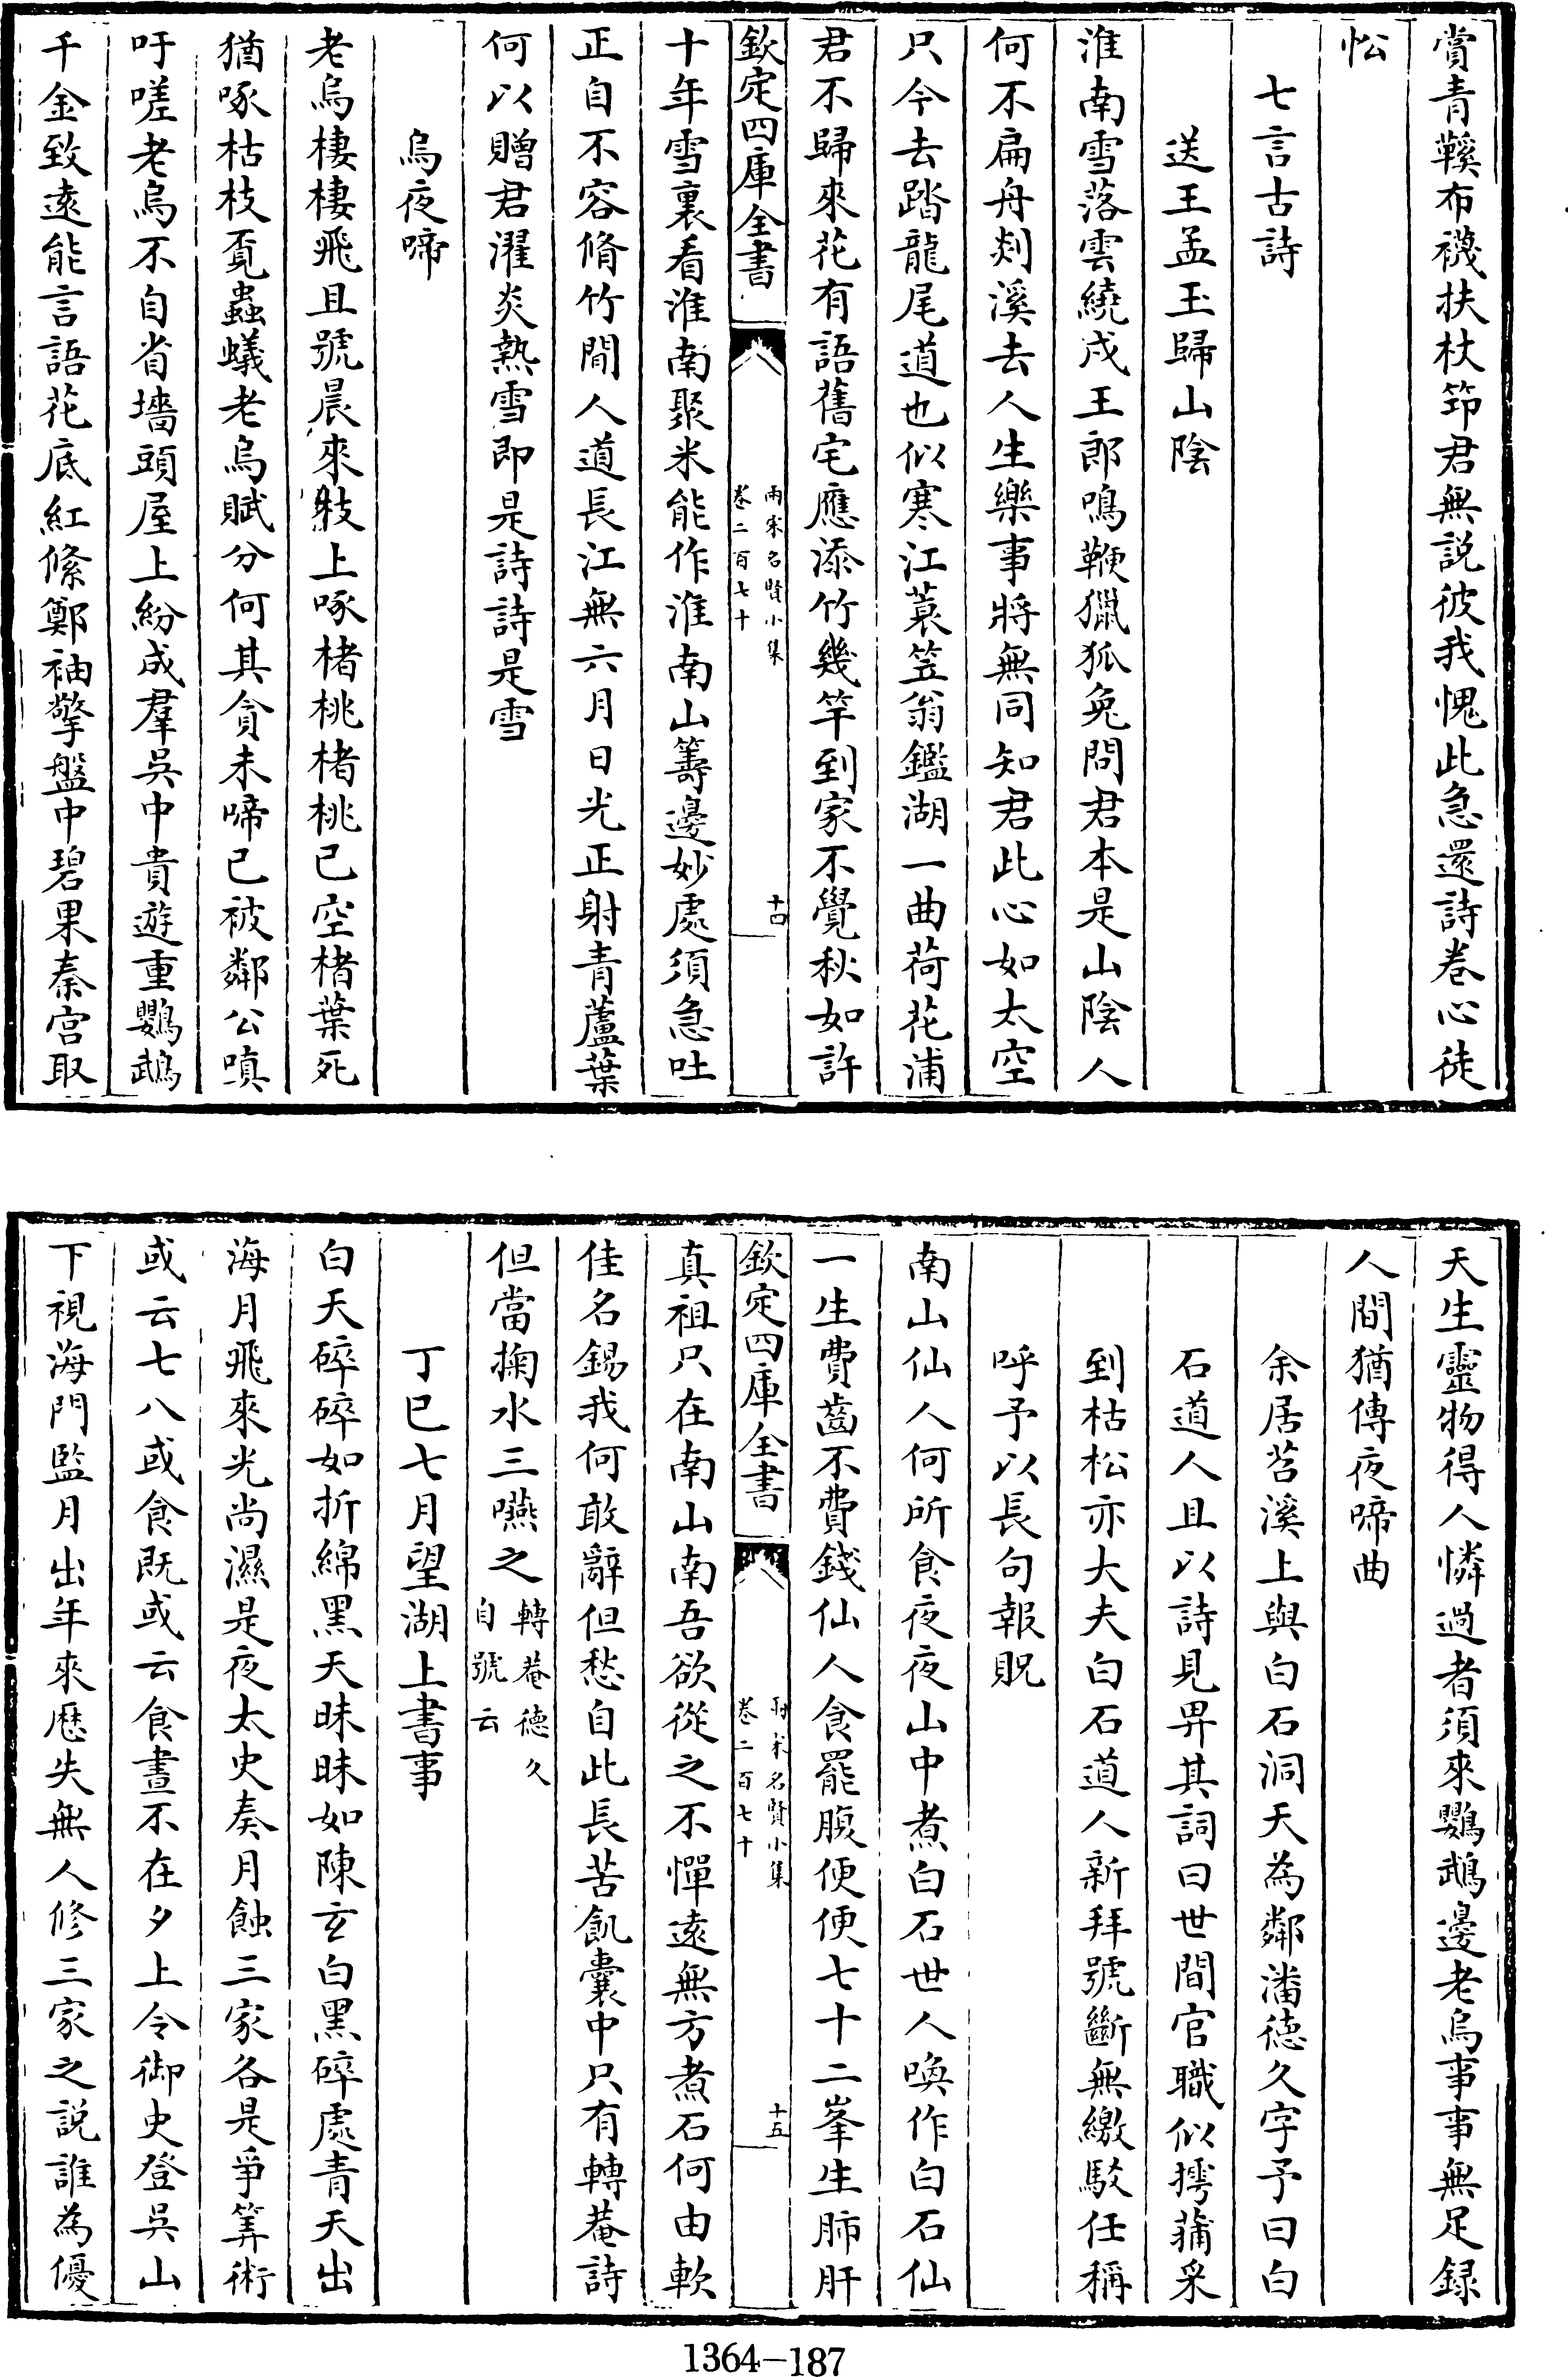 賞青鞵布襪扶杖筇君無説彼我愧此急還詩卷心徒
忪
七言古詩
送王孟玉歸山陰
淮南雪落雲繞戍王郎鳴鞭獵狐兔問君本是山陰人
何不扁舟剡溪去人生樂事將無同知君此心如太空
只今去踏龍尾道也似寒江蓑笠翁鑑湖一曲荷花浦
君不歸來花有語舊宅應添竹幾竿到家不覺秋如許
欽定四庫全書
兩宋名賢小集
卷二百七十
十四
十年雪裏看淮南聚米能作淮南山籌邊妙處須急吐
正自不容脩竹間人道長江無六月日光正射青蘆葉
何以贈君濯炎熱雪即是詩詩是雪
烏夜啼
老烏棲棲飛且號晨來枝上啄楮桃楮桃已空楮葉死
猶啄枯枝覔蟲蟻老烏賦分何其貪未啼已被鄰公嗔
吁嗟老烏不自省墻頭屋上紛成羣吳中貴遊重鸚鵡
千金致遠能言語花底紅絛鄭袖擎盤中碧果秦宮取
天生靈物得人憐過者須來鸚鵡邊老烏事事無足録
人間猶傳夜啼曲
余居苕溪上與白石洞天為鄰潘徳久字予曰白
石道人且以詩見畀其詞曰世間官職似摴蒱采
到枯松亦大夫白石道人新拜號斷無繳駮任稱
呼予以長句報貺
南山仙人何所食夜夜山中煮白石世人喚作白石仙
一生費齒不費錢仙人食罷腹便便七十二峯生肺肝
欽定四庫全書
兩宋名賢小集
卷二百七十
十五
真祖只在南山南吾欲從之不憚遠無方煮石何由軟
佳名錫我何敢辭但愁自此長苦飢囊中只有轉菴詩
但當掬水三嚥之轉菴徳久自號云
丁巳七月望湖上書事
白天碎碎如折綿黑天昧昧如陳玄白黑碎處青天出
海月飛來光尚濕是夜太史奏月蝕三家各是爭筭術
或云七八或食既或云食晝不在夕上令御史登吳山
下視海門監月出年來歴失無人修三家之説誰為優
1364-187